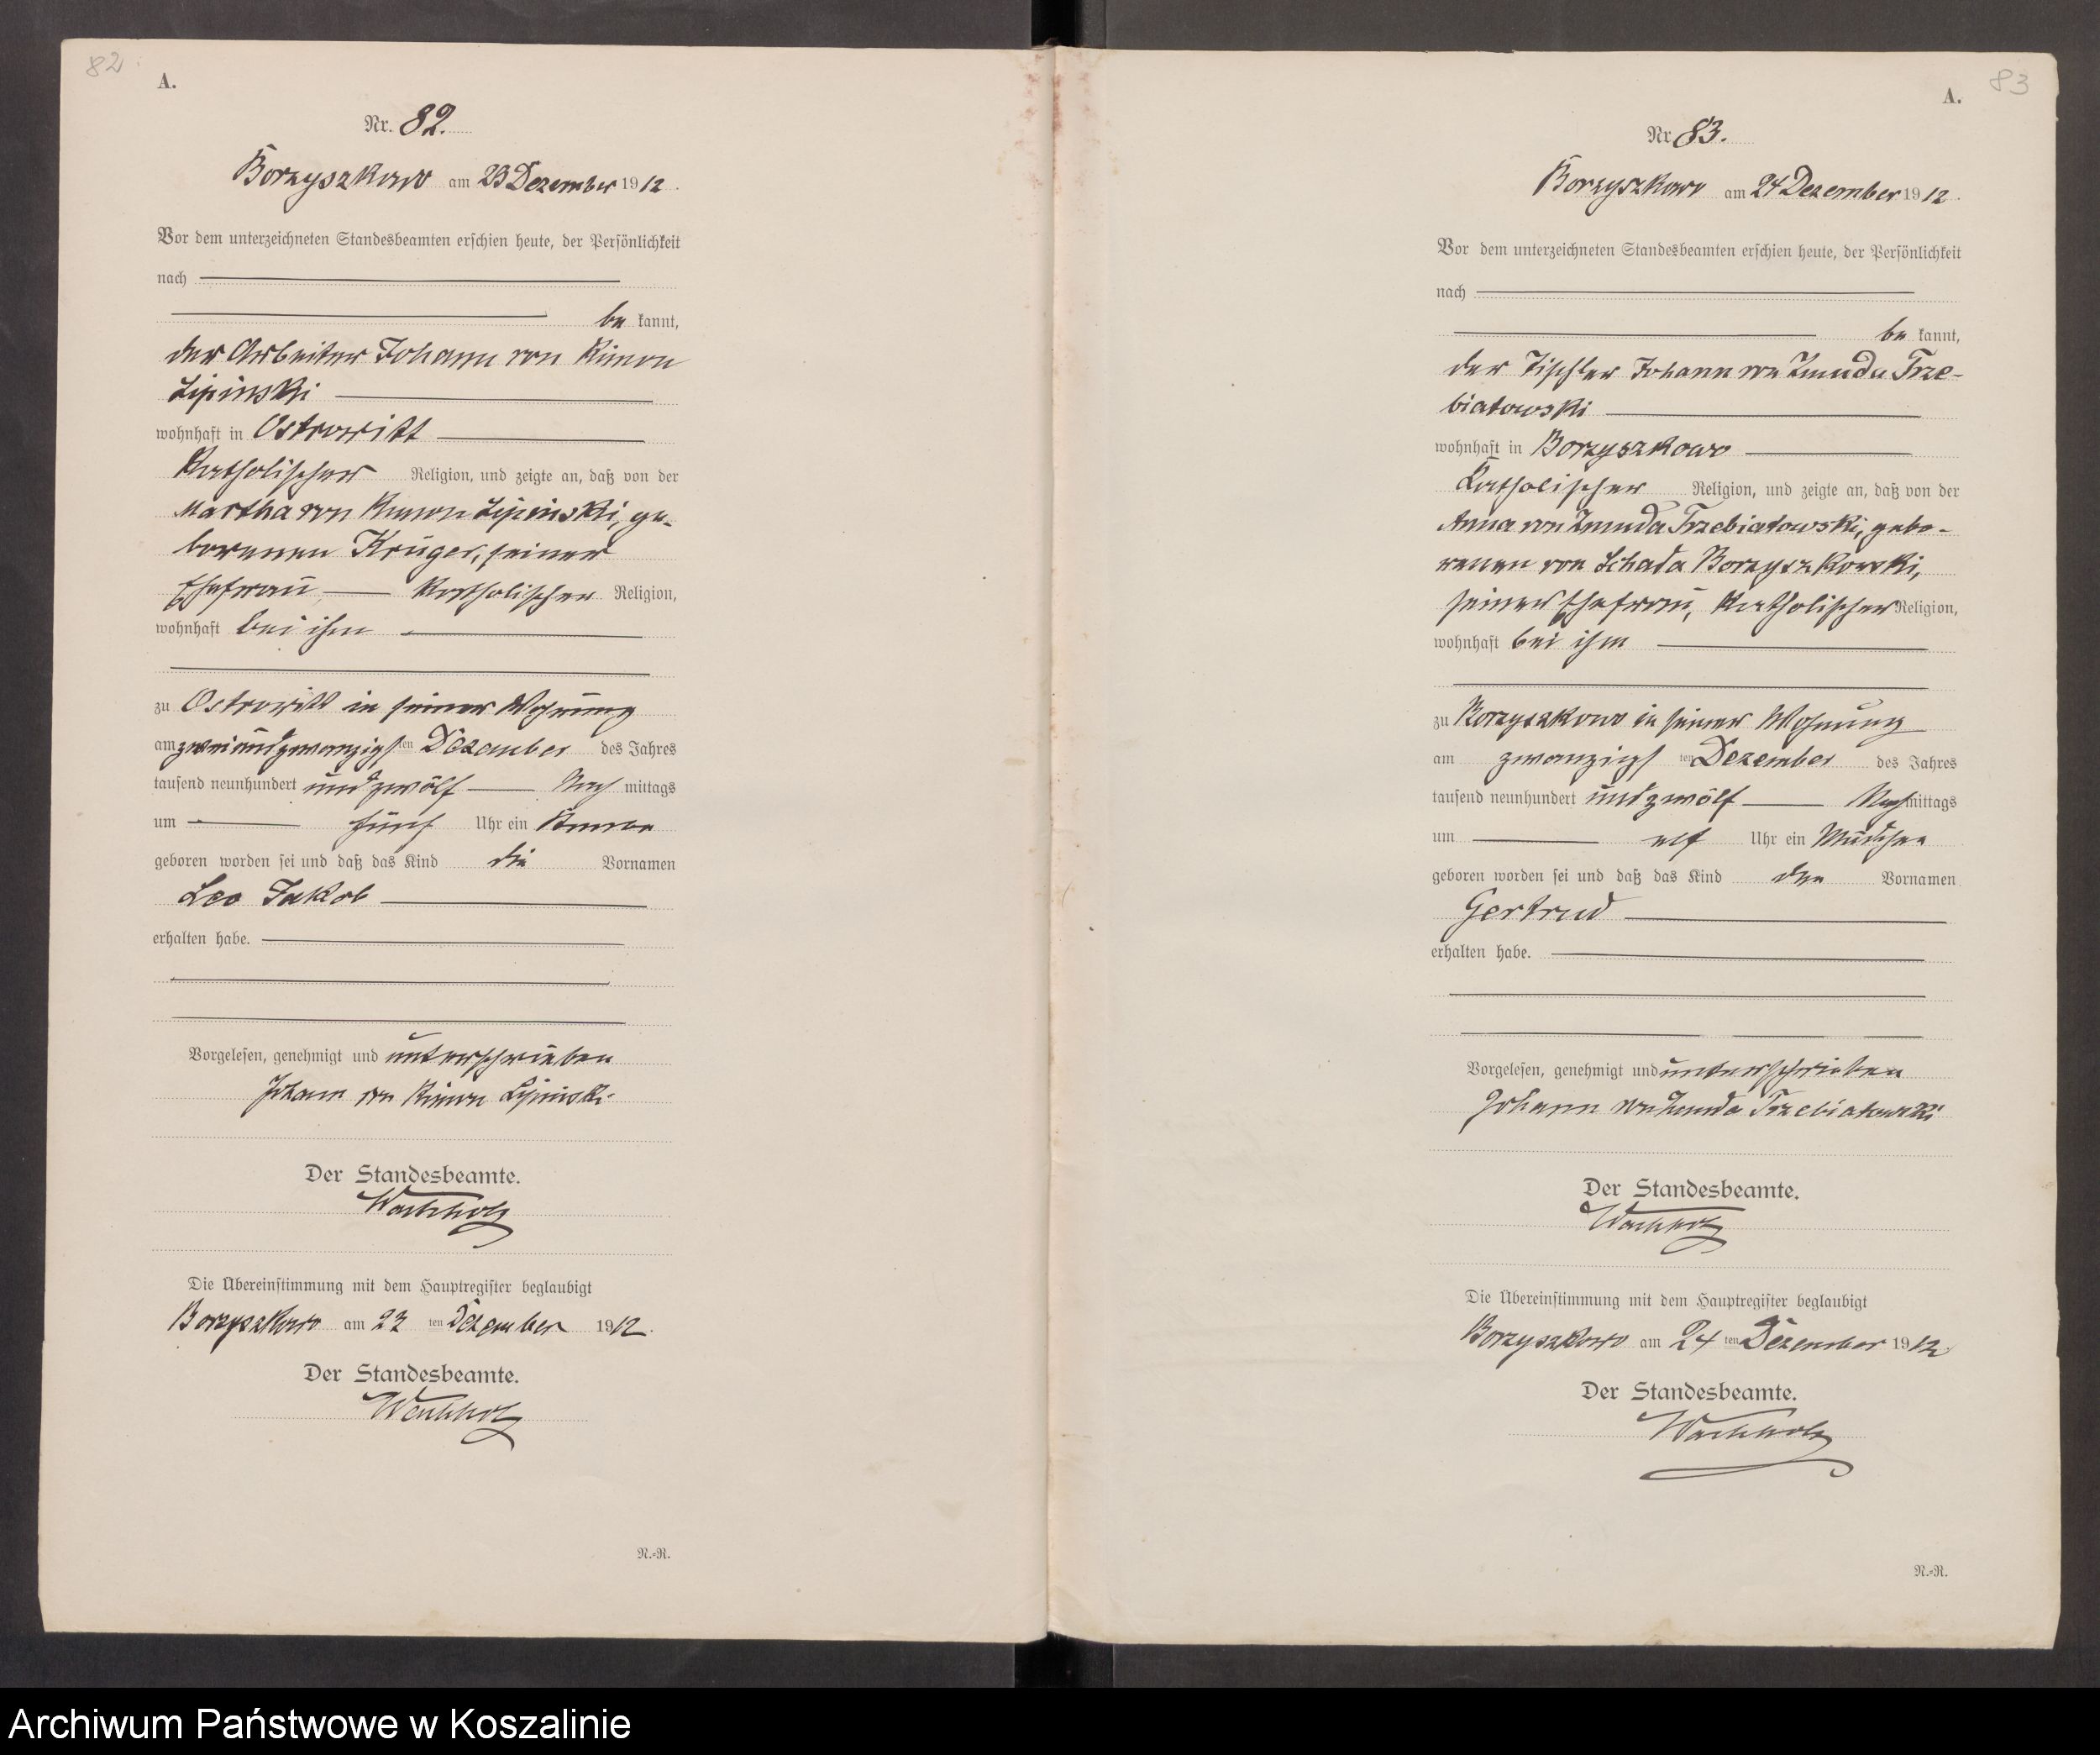 82
A.
Nr. 82.
Borzyszkowo am 23 Dezember 1912.
Vor dem unterzeichneten Standesbeamten erschien heute, der Persönlichkeit
nach
be kannt,
der Arbeiter Johann von Kimon
Lipinski
wohnhaft in Ostrowitt
Katholischer Religion, und zeigte an, daß von der
Martha von Kimon Lipinski, ge-
borenen Krüger, seiner
Ehefrau, Katholischer Religion,
wohnhaft bei ihm
zu Ostrowitt in seiner Wohnung
am zweiundzwanzigsten Dezember des Jahres
tausend neunhundert und zwölf Nach mittags
um fünf Uhr ein Knabe
geboren worden sei und daß das Kind die Vornamen
Leo Jakob
erhalten habe.
Vorgelesen, genehmigt und unterschrieben
Johann von Kimon Lipinski
Der Standesbeamte.
Wachholz
Die Übereinstimmung mit dem Hauptregister beglaubigt
Borzyszkowo am 23 ten Dezember 1912.
Der Standesbeamte.
Wachholz
N.=R.
83
A.
Nr 83.
Borzyszkowo am 24 Dezember 1912.
Vor dem unterzeichneten Standesbeamten erschien heute, der Persönlichkeit
nach
be kannt,
der Tischler Johann von Zmuda Trze-
biatowski
wohnhaft in Borzyszkowo
Katholischer Religion, und zeigte an, daß von der
Anna von Zmuda Trzebiatowski, gebo-
renen von Schada Borzyszkowski,
seiner Ehefrau, Katholischer Religion,
wohnhaft bei ihm
zu Borzyszkowo in seiner Wohnung
am zwanzigsten Dezember des Jahres
tausend neunhundert und zwölf Nachmittags
um elf Uhr ein Mädchen
geboren worden sei und daß das Kind den Vornamen
Gertrud
erhalten habe.
Vorgelesen, genehmigt und unterschrieben
Johann von Zmuda Trzebiatowski
Der Standesbeamte.
Wachholz
Die Übereinstimmung mit dem Hauptregister beglaubigt
Borzyszkowo am 24 ten Dezember 1912
Der Standesbeamte.
Wachholz
N.=R.
Archiwum Państwowe w Koszalinie